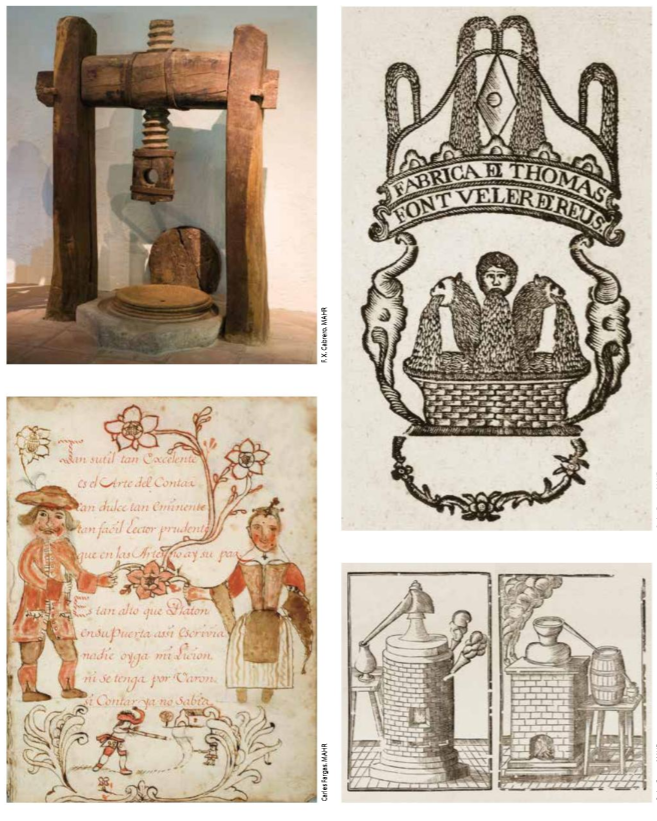 F. X. Cabrero. MAHR
FABRICA DE THOMAS
FONT VELER DE REUS.
Tan sutil tan Excelente
es el Arte del Contar
tan dulce tan eminente
tan facil Lector prudente
que en las Artes no ay su par
Es tan alto que Platon
en su Puerta assi escrivia
nadie oyga mi Licion
ni se tenga por Varon
si Contar ya no Sabia
Carles Fargas. MAHR